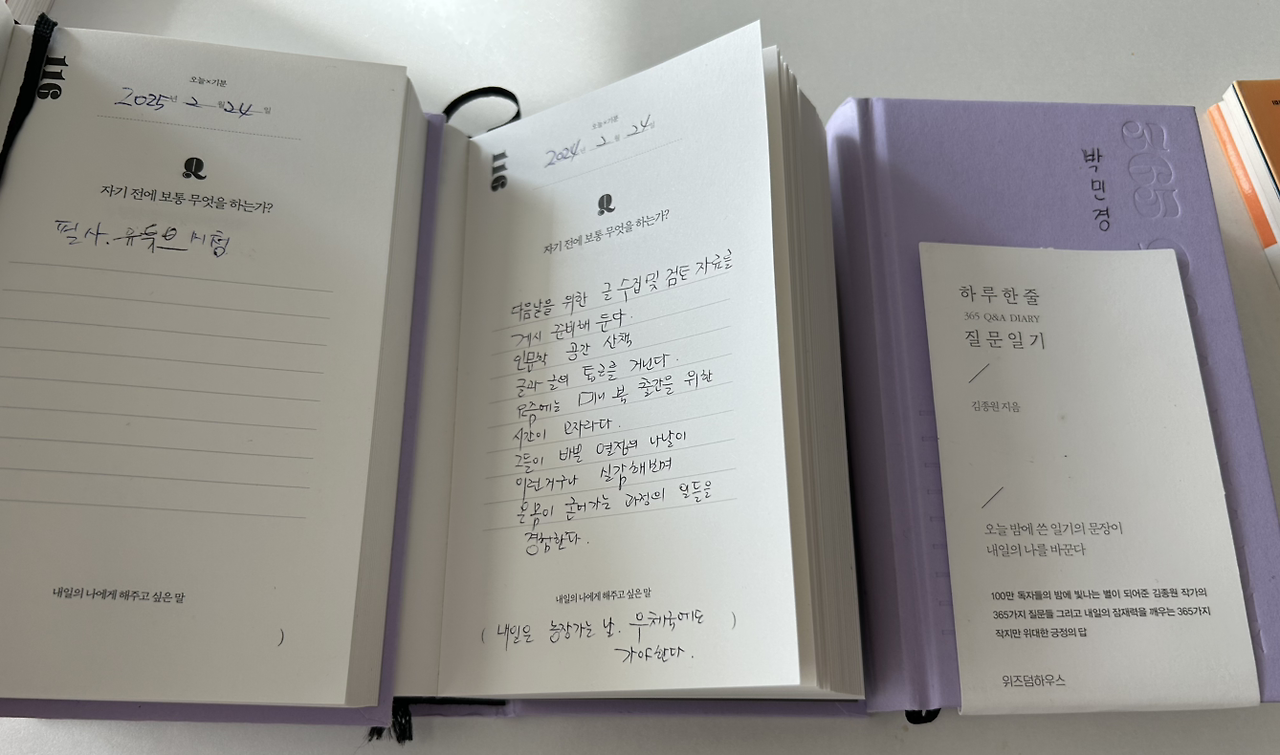 116
오늘×기분
2025년 2월 24일
Q
자기 전에 보통 무엇을 하는가?
필사. 유튜브 시청
내일의 나에게 해주고 싶은 말
)
116
오늘×기분
2024년 2월 24일
Q
자기 전에 보통 무엇을 하는가?
다음날을 위한 글 수집 및 검토 자료를
게시 준비해 둔다.
인문학 공간 산책
글과 글의 통로를 거닌다.
요즘에는 북 출간을 위한
시간이 모자라다.
그들이 바쁠 열정의 나날이
이런거구나 실감해보며
온몸이 굳어가는 과정의 일들을
경험한다.
내일의 나에게 해주고 싶은 말
( 내일은 농장가는 날. 우체국에도 )
가야한다.
365
박민경
하루 한 줄
365 Q&A DIARY
질문 일기
김종원 지음
오늘 밤에 쓴 일기의 문장이
내일의 나를 바꾼다
100만 독자들의 밤에 빛나는 별이 되어준 김종원 작가의
365가지 질문들 그리고 내일의 잠재력을 깨우는 365가지
작지만 위대한 긍정의 답
위즈덤하우스